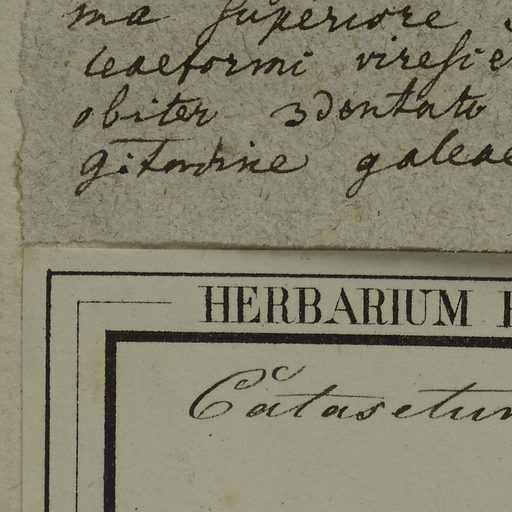 ma superiore
leaeformi viresce
obiter 3dentato
galeae
HERBARIUM
Catasetum